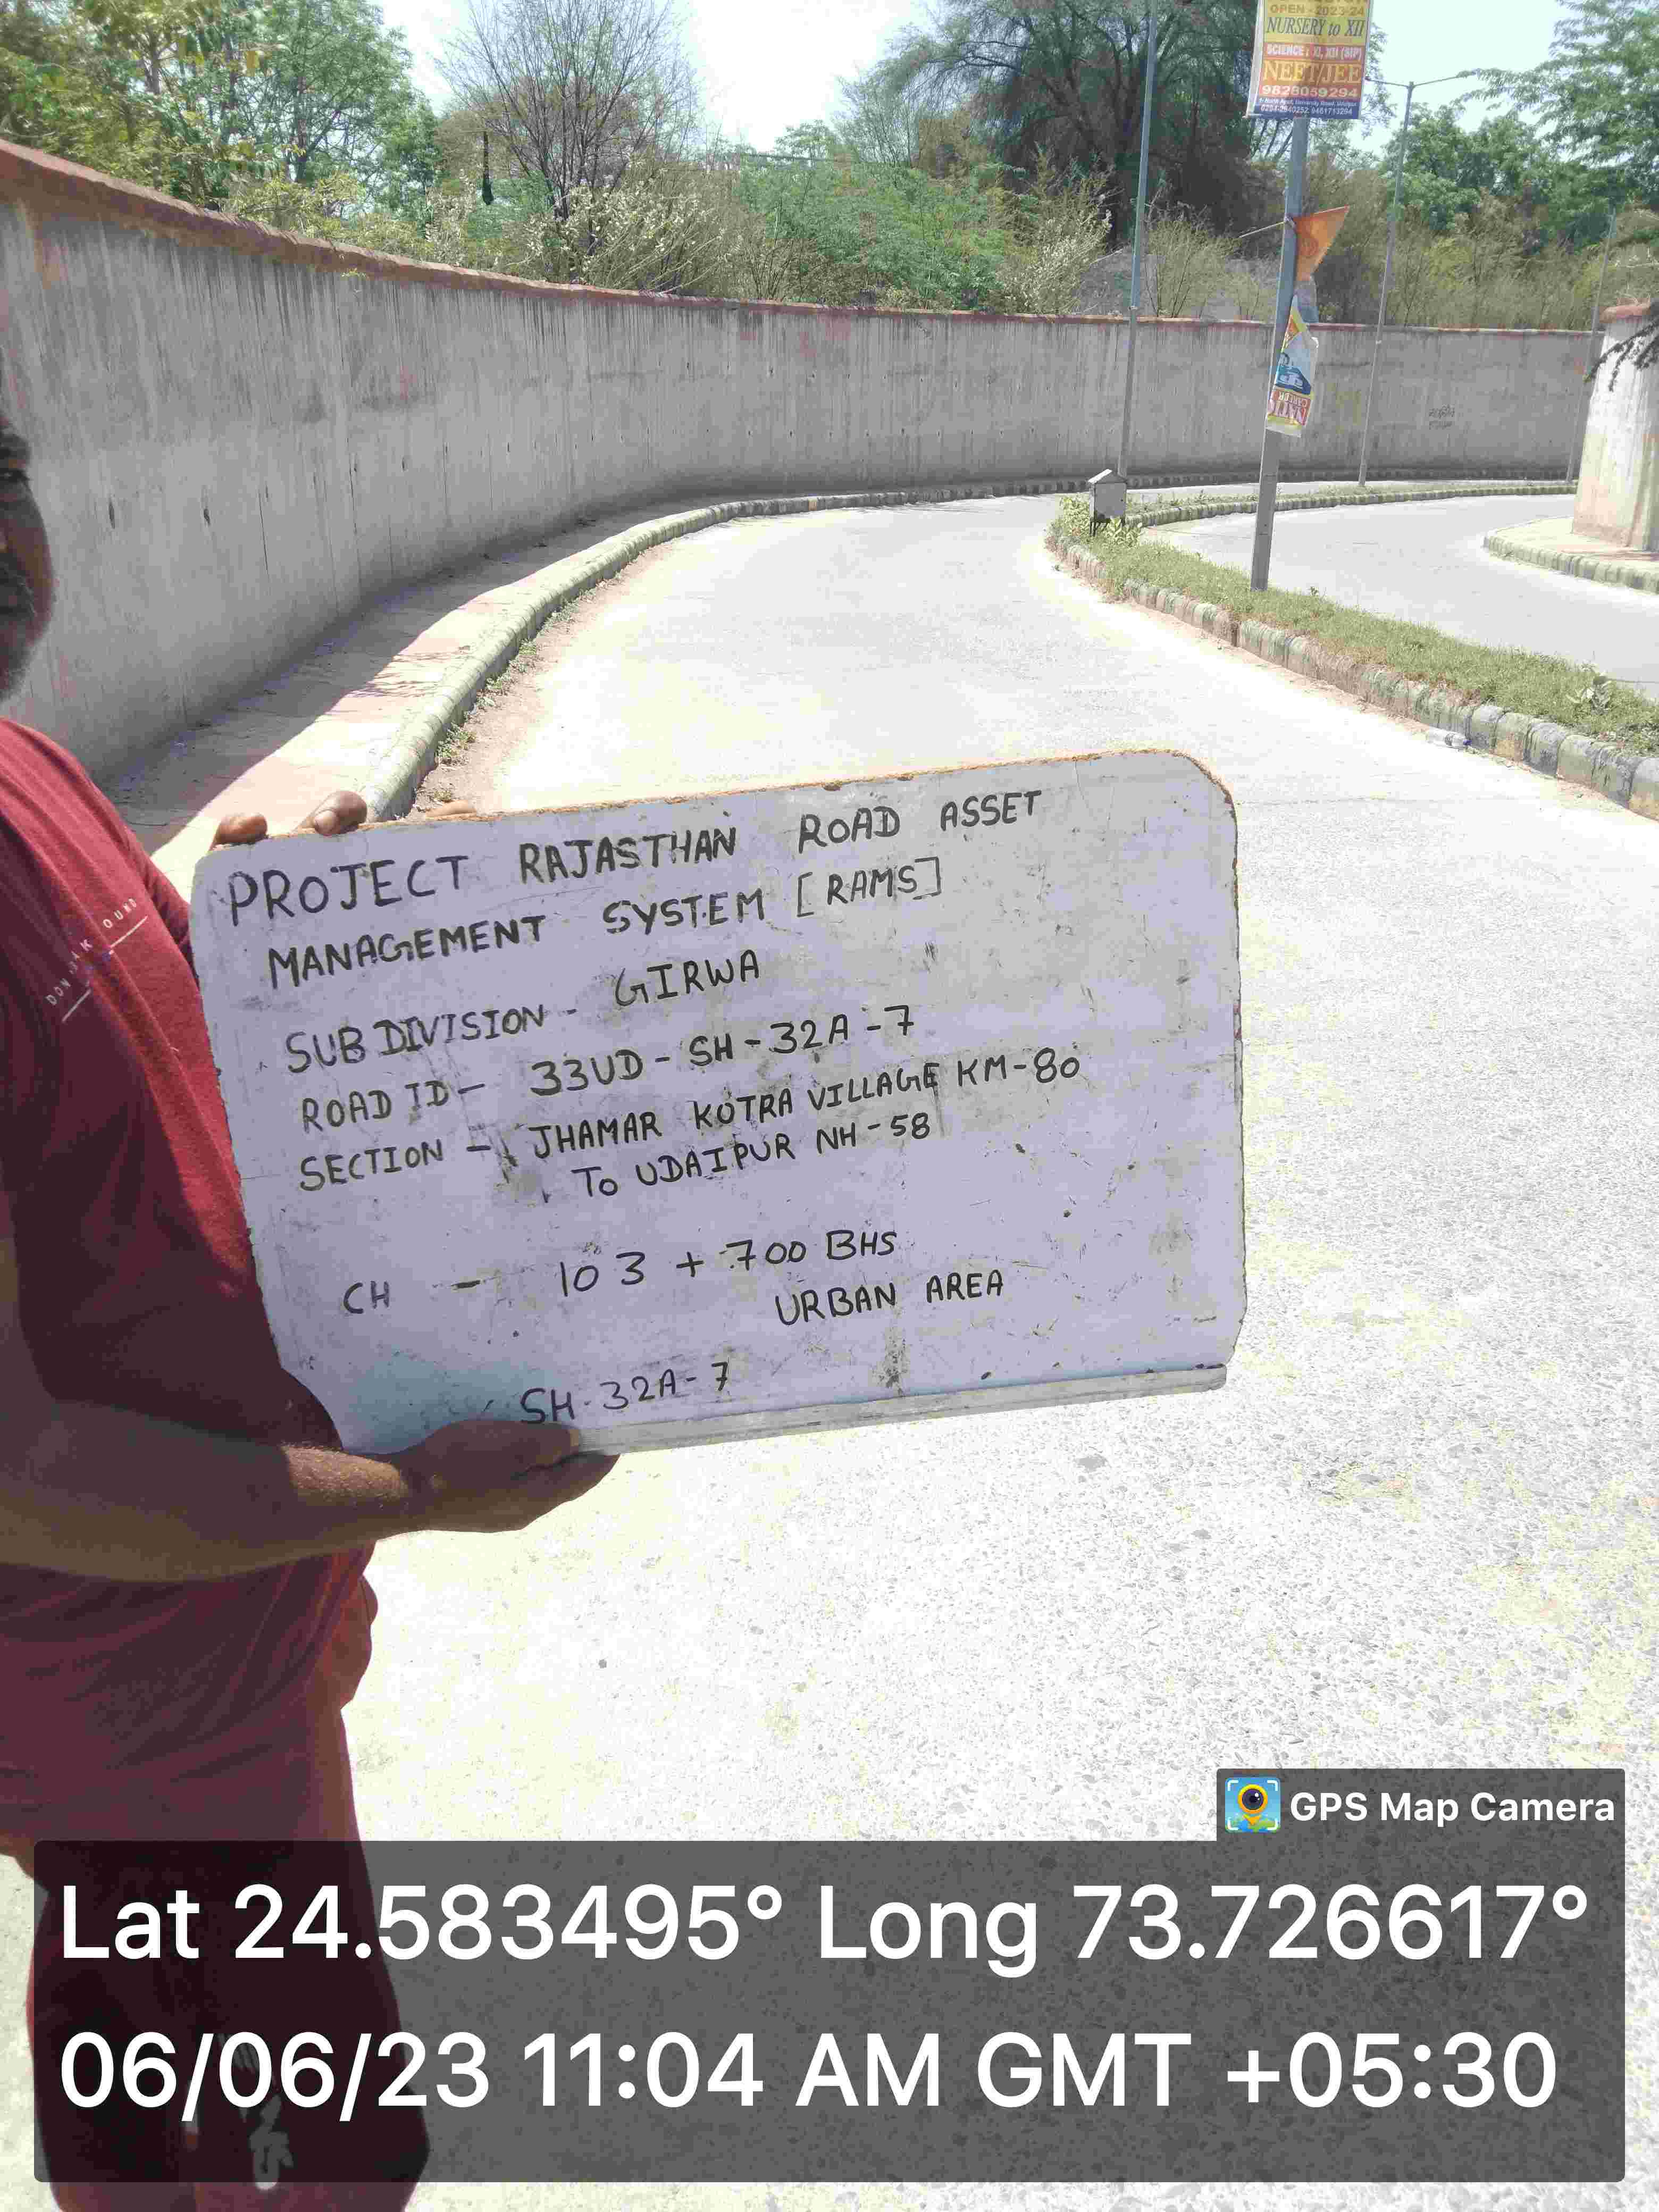 OPEN - 2023-24
NURSERY to XII
SCIENCE : XI, XII (BIP)
NEET JEE
9828059294
PROJECT RAJASTHAN ROAD ASSET
MANAGEMENT SYSTEM [RAMS]
SUB DIVISION - GIRWA
ROAD ID - 33UD - SH - 32A - 7
SECTION - JHAMAR KOTRA VILLAGE KM - 80
TO UDAIPUR NH - 58
CH - 103 + 700 BHS
URBAN AREA
SH - 32A - 7
GPS Map Camera
Lat 24.583495° Long 73.726617°
06/06/23 11:04 AM GMT +05:30